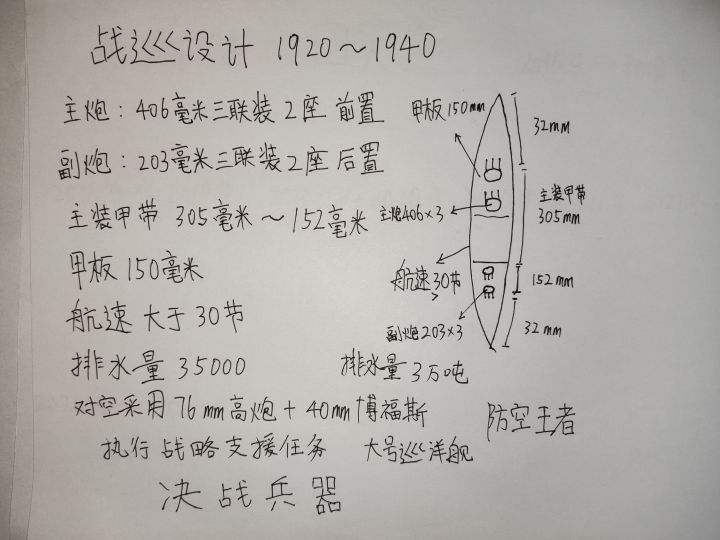 战巡设计 1920～1940
主炮：406毫米三联装 2座 前置
副炮：203毫米三联装2座 后置
主装甲带 305毫米～152毫米
甲板 150毫米
航速 大于 30节
排水量 35000
对空采用 76mm高炮+40mm博福斯
执行 战略支援任务 大号巡洋舰
决战兵器
甲板150mm
32mm
主装甲带
305mm
主炮406×3
航速>30节
152mm
副炮203×3
32mm
排水量 3万吨
防空王者